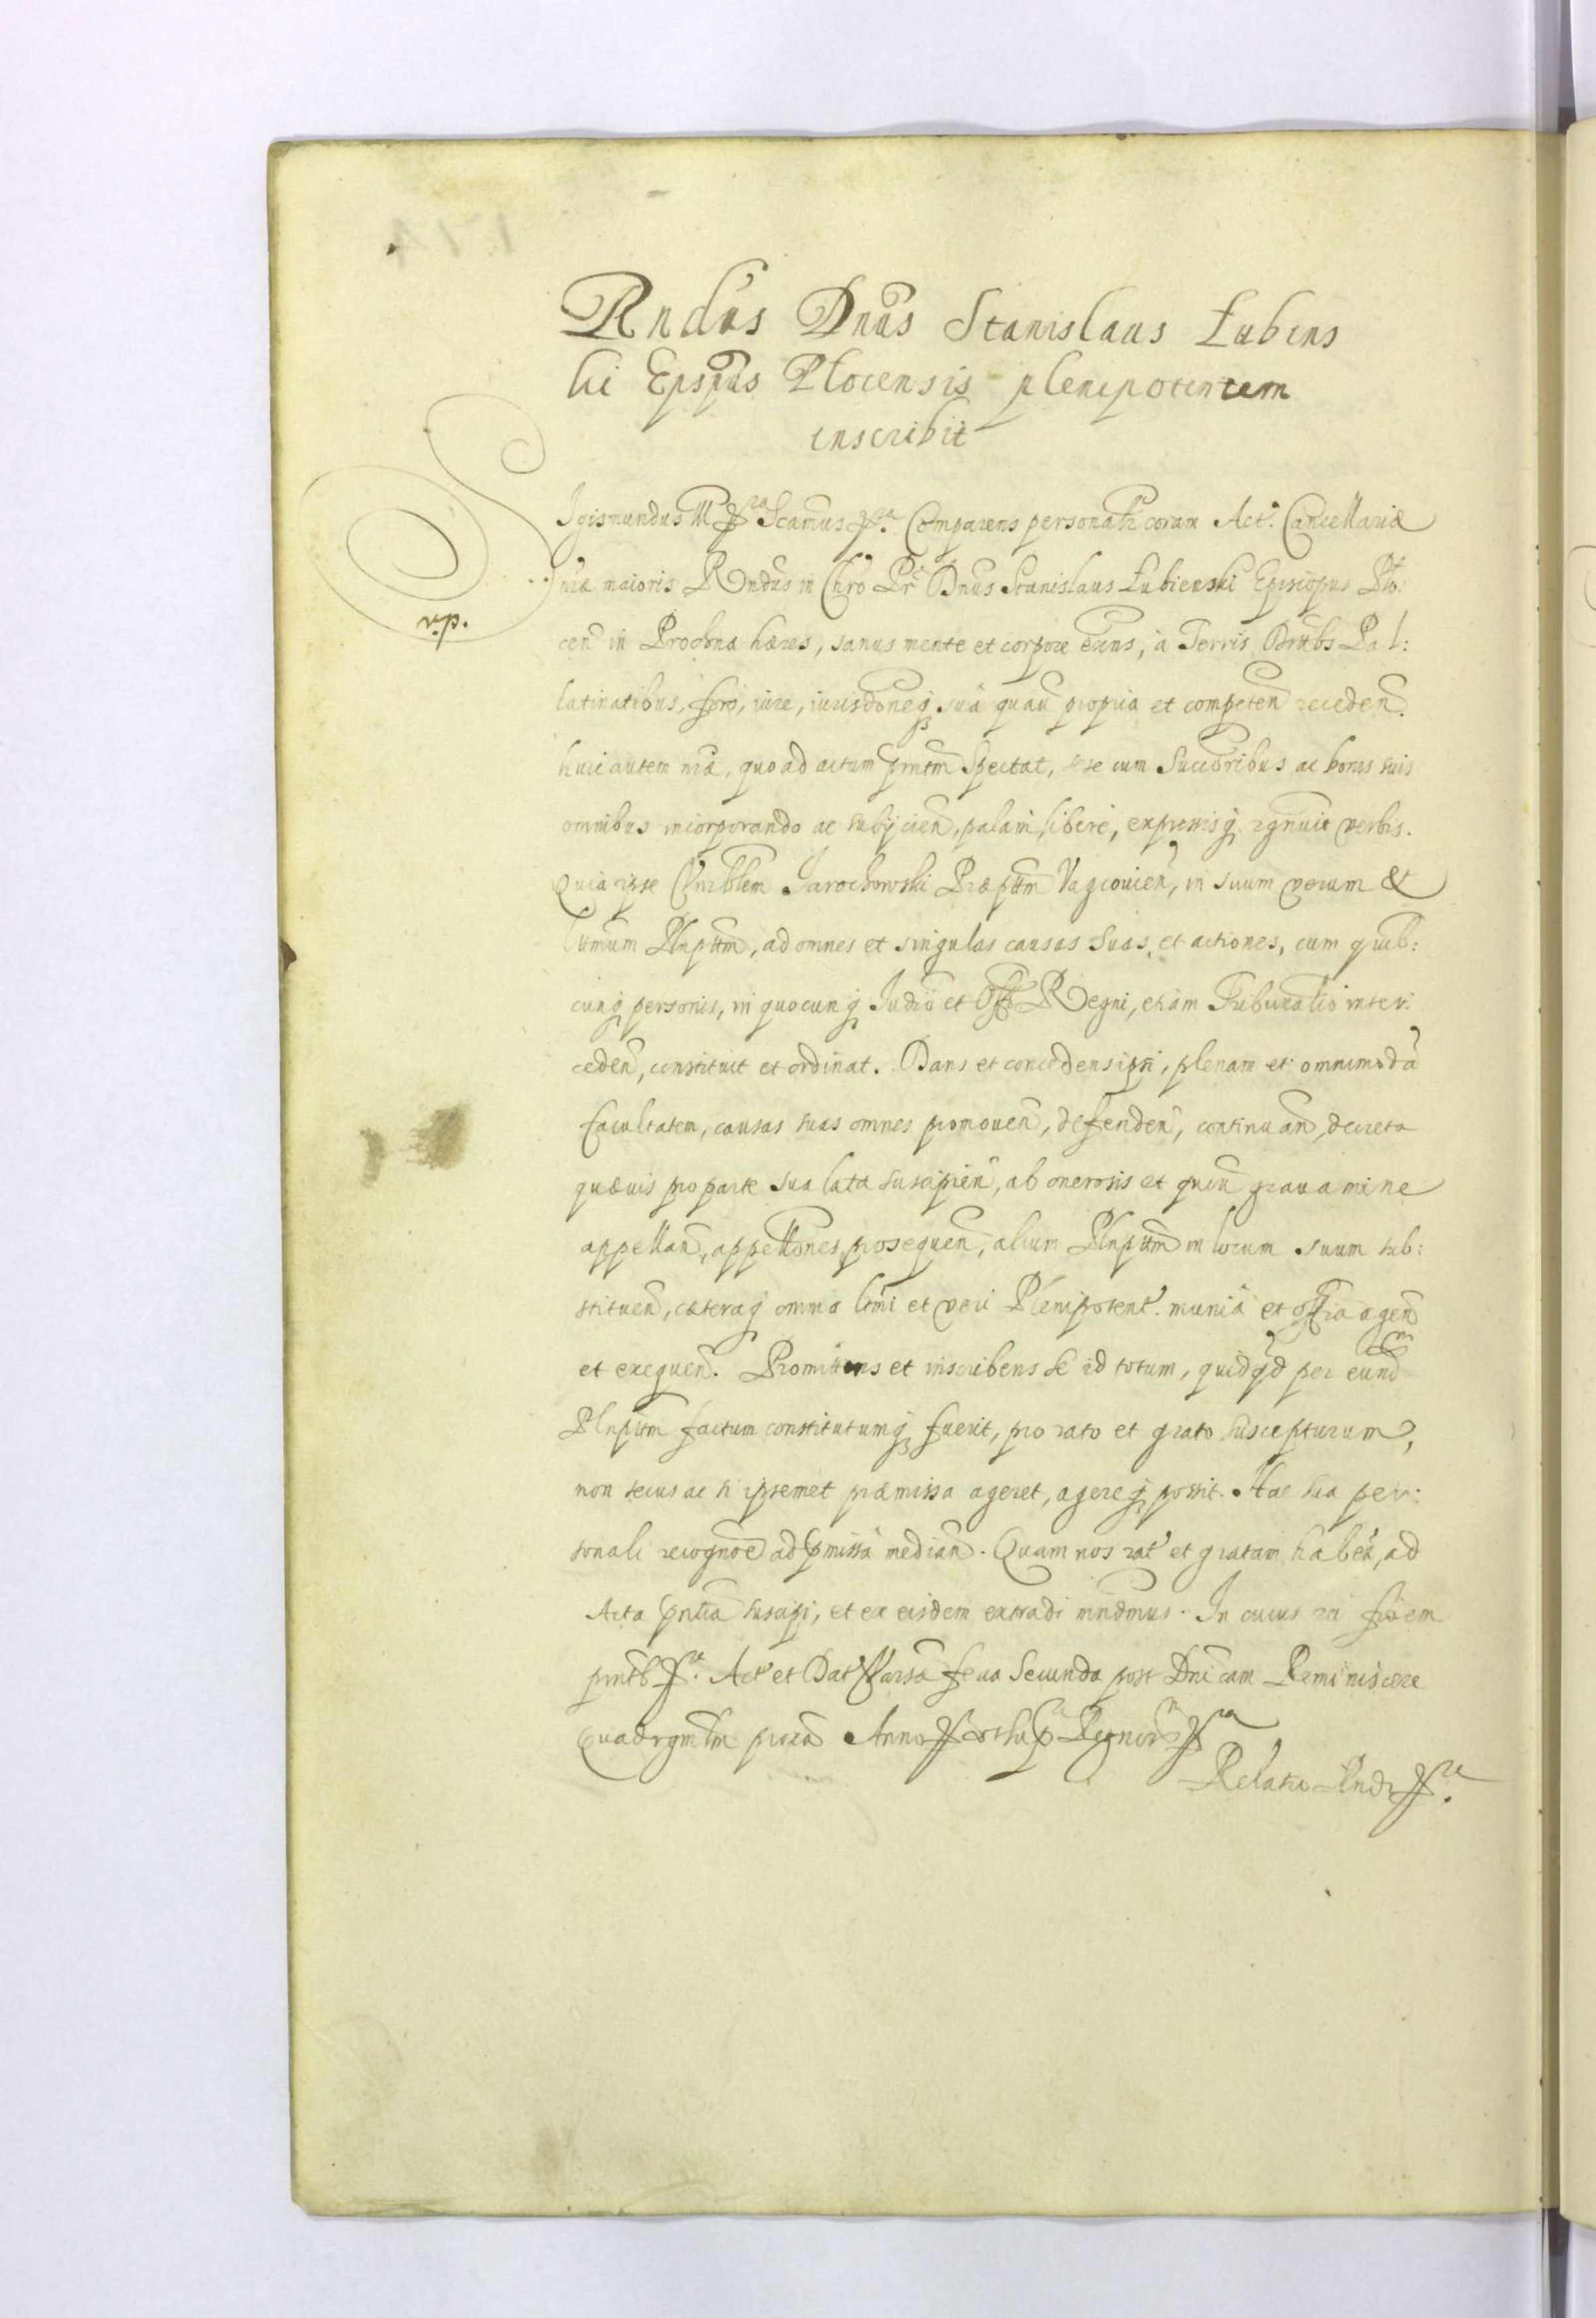 Rndus Dnus Stanislaus Łubens
ki Epspus Plocensis plenipotentem
inscribit
Sigismundus III etc Scamus etc. Comparens personalr coram Act. Cancellariæ
nræ maioris Rndus in Chro Pr Dnus Stanislaus Łubienski Episcopus Plo:
cen in Prochna hæres, sanus mente et corpore exns, à Terris Drttbs Pal:
latinatibus, foro, iure, iurisdoneq suâ quavi propria et competen receden.
huic autem nræ, quo ad actum pnttm spectat, sese cum Succoribus ac bonis suis
omnibus incorporando ac subijcien, palam, liberè, expressisq rgnuit verbis.
Quia ipse Jarochowski Præpttm in suum verum &
lttmum Plnpttm, ad omnes et singulas causas suas, et actiones, cum quib:
cunq personis, in quocunq Judio et Offo Regni, etiam Tribunalio inter:
ceden, constituit et ordinat. Dans et concedens ipsi, plenam et omnimodã
facultatem, causas suas omnes promouen, defenden, continuan, decreta
quæuis pro parte sua lata suscipien, ab onerosis et gravamine
appellan, appellones prosequen, alium Plnpttm in locum suum sub:
stituen, cæteraq omnia lttmi et veri Plenipotent. munia et offia agen
et exequen. Promittens et inscribens se id totum, quidqd per eund
Plnpttm factum constitutumq fuerit, pro rato et grato suscepturum,
non secus ac si ipsemet præmissa ageret, agereq possit. Hac sua per:
sonali recognoe ad pmissa median. Quam nos rat et gratam haben, ad
Acta pntia suscipi, et ex eisdem extradi mndmus. In cuius rei fidem
pntb etc. Act et Dat Varsa feria Secunda post Dnicam Reminiscere
Quadrgmlm proxa Anno etc Regnor etc
Relatio Rndi etc.
v.p.